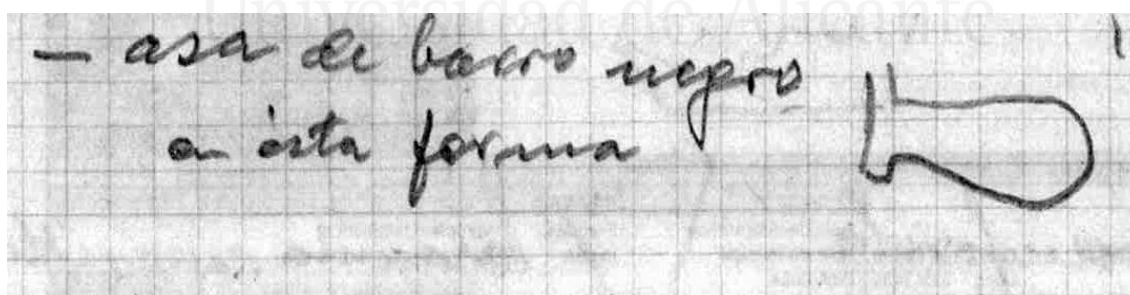 Universidad de Alicante
— asa de barro negro
en ésta forma